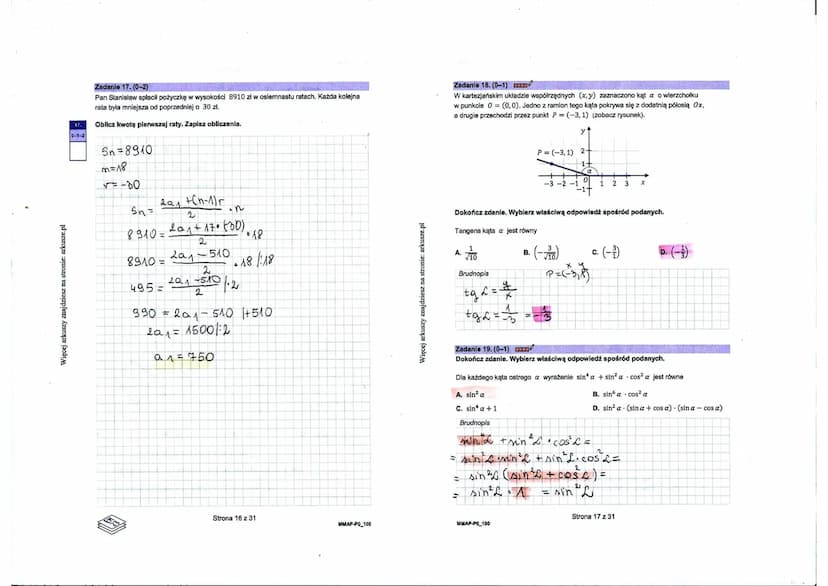 Zadanie 17. (0–2)
Pan Stanisław spłacił pożyczkę w wysokości 8910 zł w osiemnastu ratach. Każda kolejna
rata była mniejsza od poprzedniej o 30 zł.
17.
0–1–2
Oblicz kwotę pierwszej raty. Zapisz obliczenia.
Sn = 8910
n = 18
r = -30
Sn = (2a₁ + (n-1)r)/2 · n
8910 = (2a₁ + 17·(-30))/2 · 18
8910 = (2a₁ - 510)/2 · 18 |:18
495 = (2a₁ - 510)/2 |·2
990 = 2a₁ - 510 |+510
2a₁ = 1500 |:2
a₁ = 750
Więcej arkuszy znajdziesz na stronie: arkusze.pl
Strona 16 z 31
MMAP-P0_100
Zadanie 18. (0–1)
W kartezjańskim układzie współrzędnych (x, y) zaznaczono kąt α o wierzchołku
w punkcie O = (0, 0). Jedno z ramion tego kąta pokrywa się z dodatnią półosią Ox,
a drugie przechodzi przez punkt P = (−3, 1) (zobacz rysunek).
y
P = (−3, 1) 2
1
α
0
−3 −2 −1 1 2 3 x
−1
Dokończ zdanie. Wybierz właściwą odpowiedź spośród podanych.
Tangens kąta α jest równy
A. 1/√10 B. (−3/√10) C. (−3/1) D. (−1/3)
Brudnopis
x y
P = (-3, 1)
tg α = y/x
tg α = 1/-3 = -1/3
Zadanie 19. (0–1)
Dokończ zdanie. Wybierz właściwą odpowiedź spośród podanych.
Dla każdego kąta ostrego α wyrażenie sin⁴ α + sin² α · cos² α jest równe
A. sin² α B. sin⁶ α · cos² α
C. sin⁴ α + 1 D. sin² α · (sin α + cos α) · (sin α − cos α)
Brudnopis
sin⁴α + sin²α · cos²α =
= sin²α · sin²α + sin²α · cos²α =
= sin²α (sin²α + cos²α) =
= sin²α · 1 = sin²α
Więcej arkuszy znajdziesz na stronie: arkusze.pl
Strona 17 z 31
MMAP-P0_100